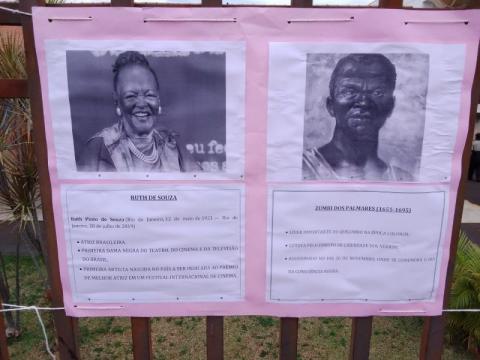 eu fe
os a
RUTH DE SOUZA
Ruth Pinto de Souza (Rio de Janeiro, 12 de maio de 1921 — Rio de
Janeiro, 28 de julho de 2019)
ATRIZ BRASILEIRA
PRIMEIRA DAMA NEGRA DO TEATRO, DO CINEMA E DA TELEVISÃO
DO BRASIL.
PRIMEIRA ARTISTA NASCIDA NO PAÍS A SER INDICADA AO PRÊMIO
DE MELHOR ATRIZ EM UM FESTIVAL INTERNACIONAL DE CINEMA.
ZUMBI DOS PALMARES (1655-1695)
LÍDER IMPORTANTE DO QUILOMBO NA ÉPOCA COLONIAL.
LUTAVA PELO DIREITO DE LIBERDADE DOS NEGROS.
ASSASSINADO NO DIA 20 DE NOVEMBRO, ONDE SE COMEMORA O DIA
DA CONSCIÊNCIA NEGRA.